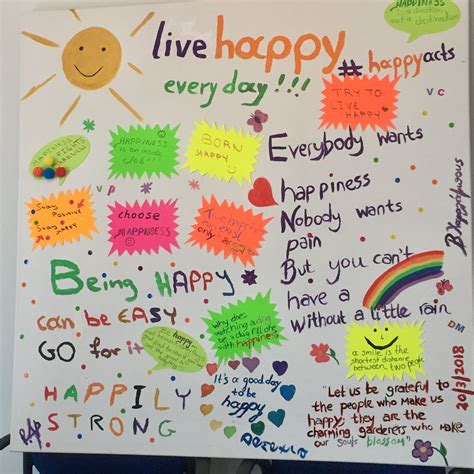 live happy
every day!!!
HAPPINESS
is a direction
not a destination
#happyacts
TRY TO
LIVE HAPPY
vc
HAPPINESS
HAPPINESS
is an inside
Job!!!
BORN
HAPPY
Everybody wants
happiness
Nobody wants
pain
But you can't
have a rainbow
without a little rain
vp
Stay
POSITIVE
Stay
HAPPY
choose
HAPPINESS
only
B.Happy
Being HAPPY
can be EASY
GO for it
DM
why does
watching a dog
be a dog fill one
with happiness
a smile is the
shortest distance
between two people
It's a good day
to be
happy
HAPPILY
STRONG
"Let us be grateful to
the people who make us
happy; they are the
charming gardeners who make
our souls blossom"
20/3/2018